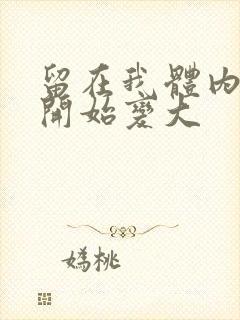 留在我體內
開始變大
嫣桃